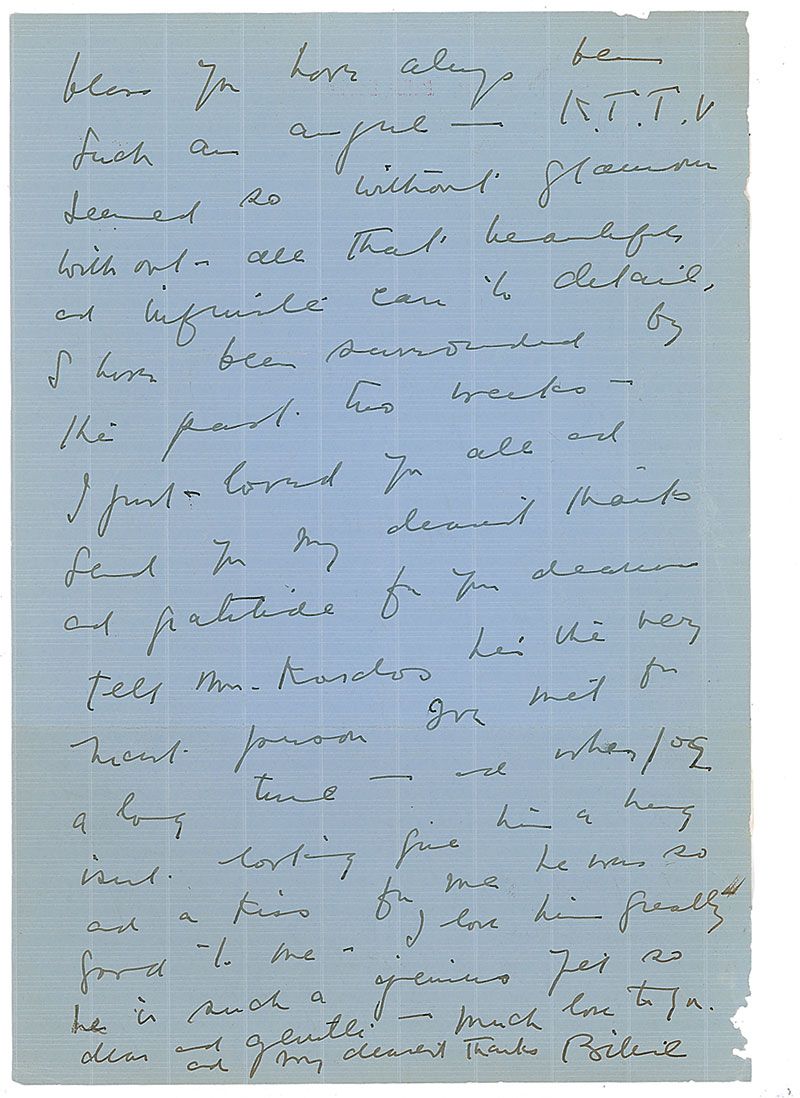 bless you have always been
such an angel — K.T.T.V
seemed so without glamour
without all that beautiful
and infinite care to detail,
I have been surrounded by
the past two weeks —
I just loved you all and
send you my dearest thanks
and gratitude for your dearness
tell Mr. he's the very
nicest person Ive met for
a long time — and when
isnt looking give him a hug
and a kiss for me he was so
good to me — I love him greatly
he is such a genius yet so
dear and gentle — much love to you.
and my dearest thanks Billie